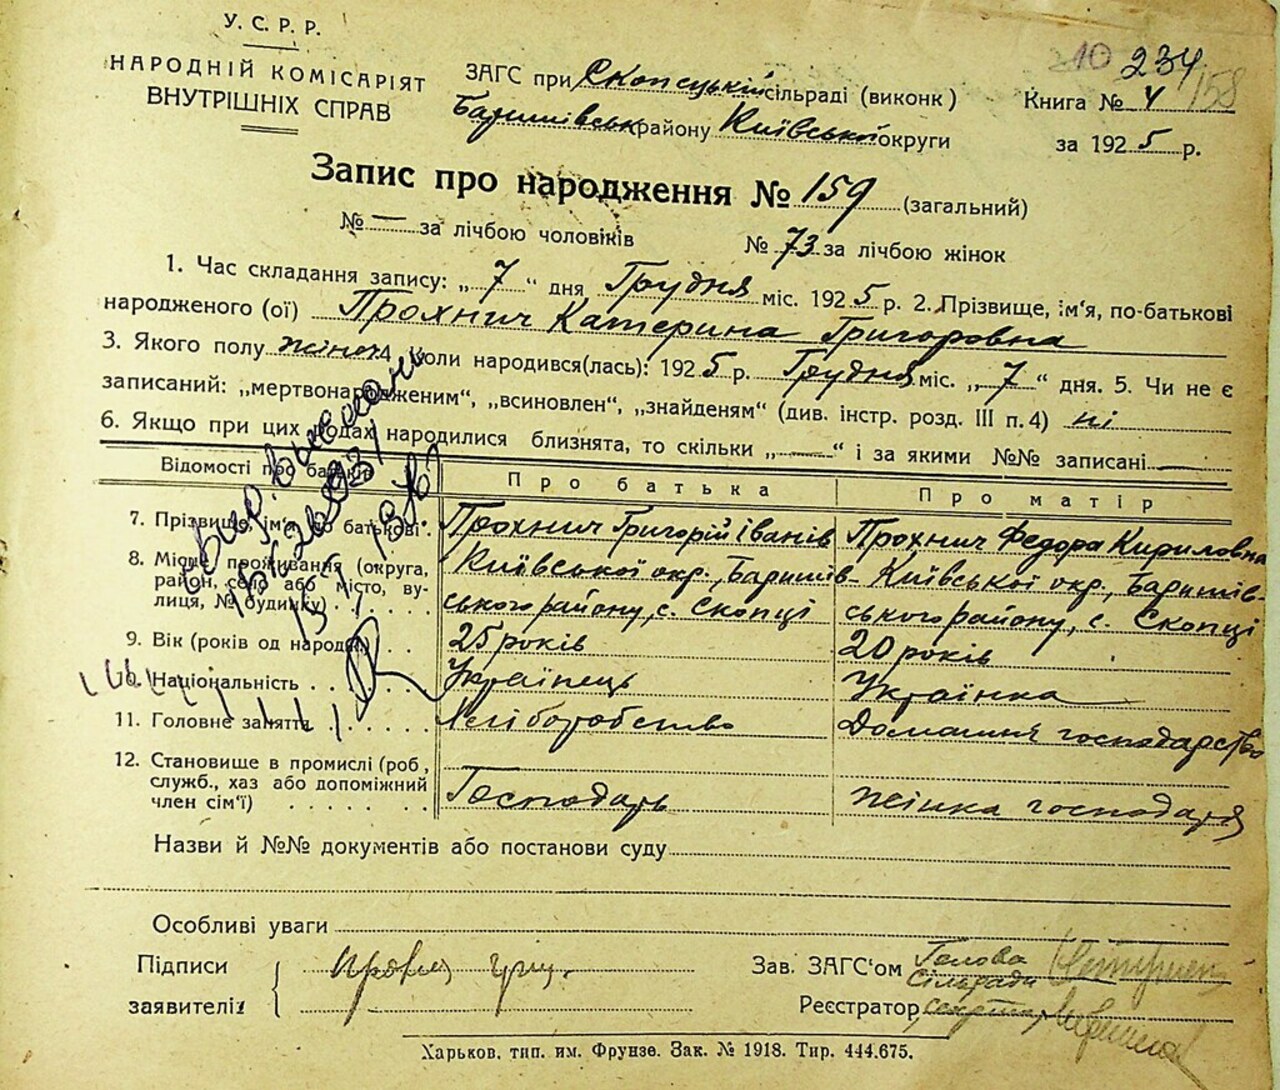 У. С. Р. Р.
НАРОДНІЙ КОМІСАРІЯТ
ВНУТРІШНІХ СПРАВ
ЗАГС при Скопецькій сільраді (виконк )
Баришівськ району Київської округи
10 234 158
Книга № 4
за 1925 р.
Запис про народження № 159 (загальний)
№ — за лічбою чоловіків № 73 за лічбою жінок
1. Час складання запису: „ 7 “ дня Грудня міс. 1925 р. 2. Прізвище, ім'я, по-батькові
народженого (ої) Прохнич Катерина Григоровна
3. Якого полу жіноч 4. Коли народився(лась): 1925 р. Грудня міс. „ 7 “ дня. 5. Чи не є
записаний: „мертвонародженим“, „всиновлен“, „знайденям“ (див. інстр. розд. III п. 4) ні
6. Якщо при цих родах народилися близнята, то скільки „ — “ і за якими №№ записані —
Відомості про батьків
Про батька
Про матір
7. Прізвище, ім'я по батькові.
Прохнич Григорій Іванів
Прохнич Федора Кириловна
8. Місце проживання (округа, район, село або місто, вулиця, № будинку . . . . . .
Київської окр., Баришів-
ського району, с. Скопці
Київської окр., Баришів-
ського району, с. Скопці
9. Вік (років од народж.)
25 років
20 років
10. Національність . . . . .
Українець
Українка
11. Головне заняття . . . . .
Хліборобство
Домашнє господарство
12. Становище в промислі (роб,
служб., хаз або допоміжний
член сім'ї) . . . . . .
Господарь
жінка господаря
Назви й №№ документів або постанови суду
Особливі уваги
Підписи
заявителів
Зав. ЗАГС'ом Голова
Сільради
Реєстратор секретар
Харьков. тип. им. Фрунзе. Зак. № 1918. Тир. 444.675.